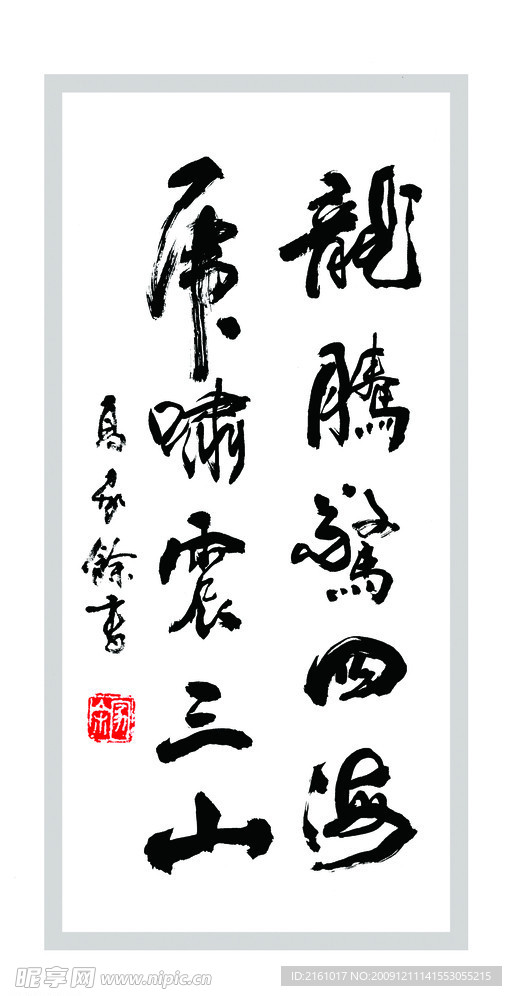 龍騰驚四海
虎嘯震三山
昵享网 www.nipic.cn
ID:2161017 NO:20091211141553055215